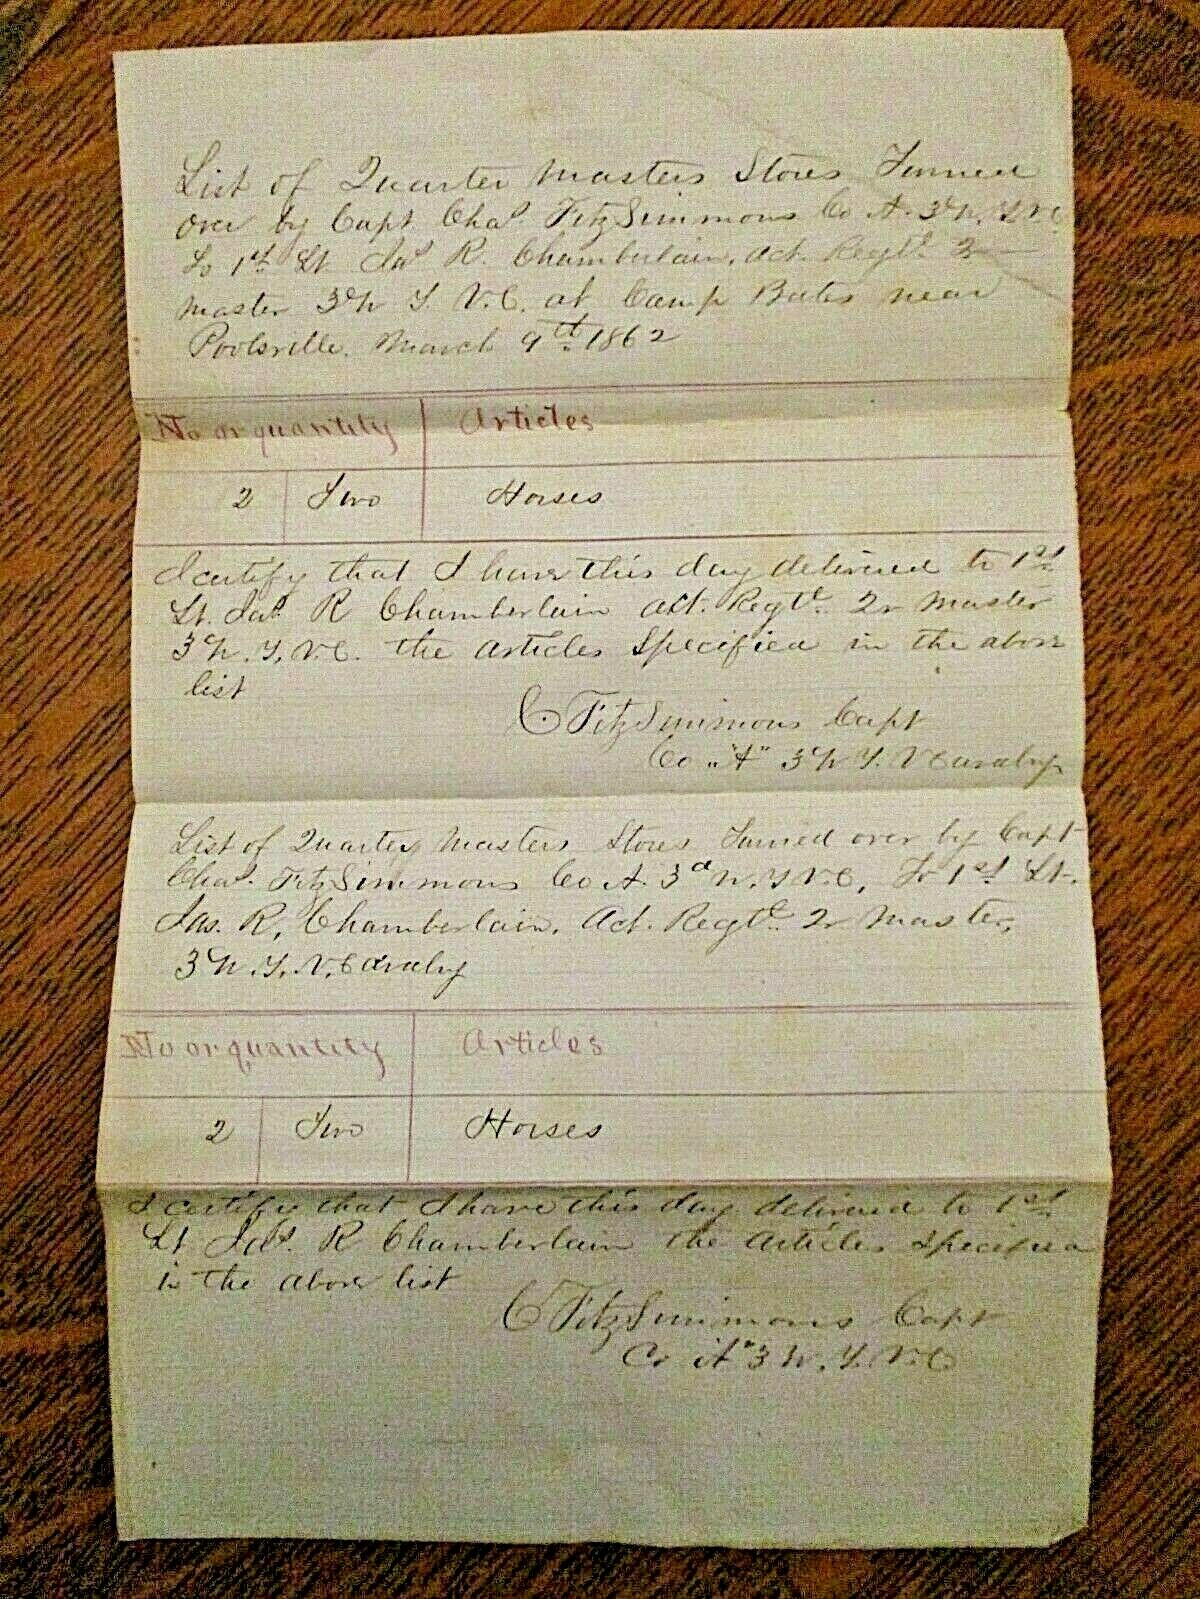 List of Quarter Masters Stores Turned
over by Capt Chas. FitzSimmons Co A. 3d N. Y. V. C.
To 1st Lt Jas R. Chamberlain, Act. Regtl. Qr
Master 3d N. Y. V. C. at Camp Bates near
Poolsville. March 9th 1862
No or quantity Articles
2 Two Horses
I certify that I have this day delivered to 1st
Lt. Jas. R Chamberlain Act. Regtl. Qr Master
3d N. Y. V. C. the articles specified in the above
list
C. FitzSimmons Capt
Co "A" 3 N Y. V Cavalry
List of Quarter Masters Stores Turned over by Capt
Chas. FitzSimmons Co A. 3d N. Y V. C. To 1st Lt.
Jas. R. Chamberlain, Act. Regtl. Qr Master,
3 N. Y. V. Cavalry
No or quantity Articles
2 Two Horses
I certify that I have this day delivered to 1st
Lt Jas. R Chamberlain the articles specified
in the above list
C FitzSimmons Capt
Co "A" 3 N. Y. V. C